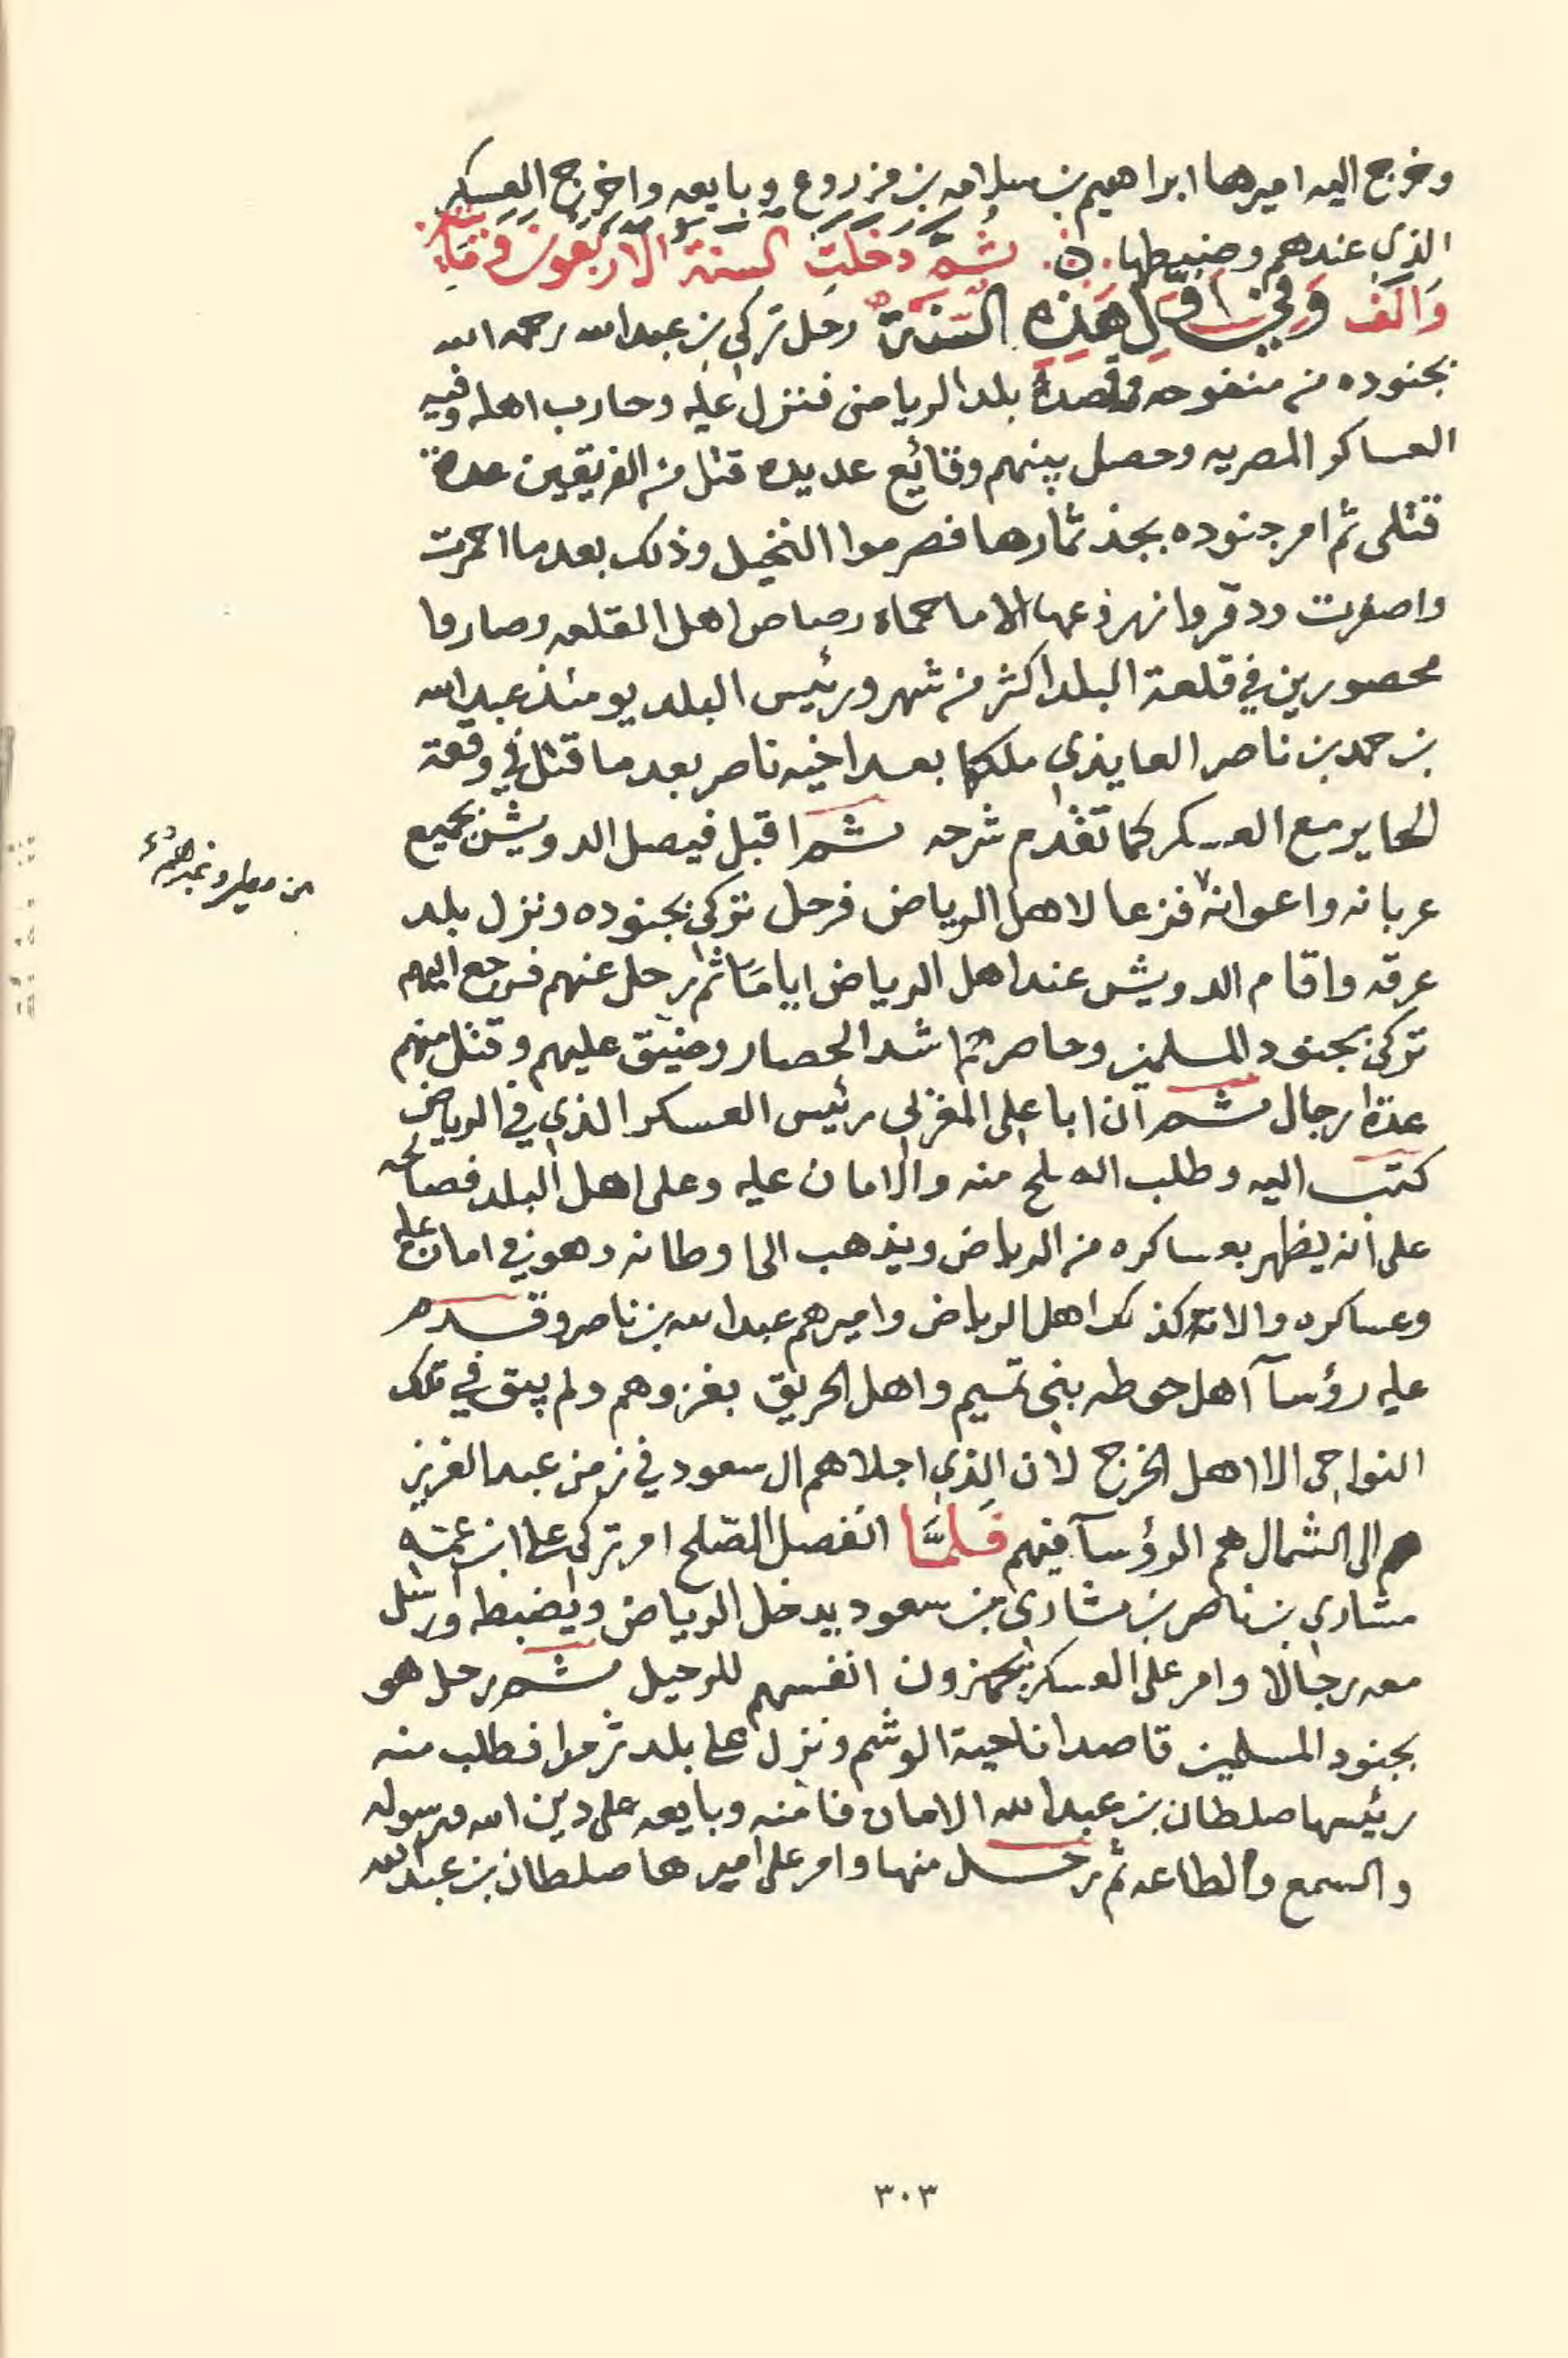 وخرج اليه اميرها ابراهيم بن سلامه بن مزروع وبايعه واخرج العسكر
الذي عندهم وضبطها . ن . ثُمَّ دَخَلَتِ السنة الاربعون ومائتين
وَالف وَفي اول هَذِهِ السَّنَة رحل تركي بن عبدالله رحمه الله
بجنوده من منفوحه وقصد بلد الرياض فنزل عليه وحارب اهله وفيه
العساكر المصريه وحصل بينهم وقائع عديده قتل من الفريقين عدة
قتلى ثم امر جنوده بجذ ثمارها فصرموا النخيل وذلك بعد ما احمرت
واصفرت ودمروا زروعها الا ما حماه رصاص اهل القلعه وصاروا
محصورين في قلعة البلد اكثر من شهر ورئيس البلد يومئذ عبدالله
بن حمد بن ناصر العايذي ملكها بعد اخيه ناصر بعد ما قتل في وقعة
الحاير مع العسكر كما تقدم شرحه ثم اقبل فيصل الدويش بجميع
عربانه واعوانه فزعا لاهل الرياض فرحل تركي بجنوده ونزل بلد
من مطير وغيرهم
عرقه واقام الدويش عند اهل الرياض اياما ثم رحل عنهم فرجع اليهم
تركي بجنود المسلمين وحاصرهم اشد الحصار وضيق عليهم وقتل منهم
عدة رجال ثم ان ابا علي المغربي رئيس العسكر الذي في الرياض
كتب اليه وطلب الصلح منه والامان عليه وعلى اهل البلد فصالحه
على أنه يظهر بعساكره من الرياض ويذهب الى اوطانه وهو في امان عليه
وعساكره والامان كذلك اهل الرياض واميرهم عبدالله بن ناصر وقدم
عليه رؤسآ اهل حوطه بني تميم واهل الحريق بغزوهم ولم يبق في تلك
النواحي الا اهل الخرج لان الذي اجلاهم ال سعود في زمن عبدالعزيز
الى الشمال هم الرؤسآ فيهم فَلَمَّا انفصل الصّلح امر تركي على ابن عمته
مشاري بن ناصر بن مشاري بن سعود يدخل الرياض ويضبطه وارسل
معه رجالا وامر على العسكر يجهزون انفسهم للرحيل ثم رحل هو
بجنود المسلمين قاصدا ناحية الوشم ونزل على بلد ثرمدا فطلب منه
رئيسها صلطان بن عبدالله الامان فامنه وبايعه على دين الله ورسوله
والسمع والطاعه ثم رحل منها وامر على اميرها صلطان بن عبدالله
٣٠٣